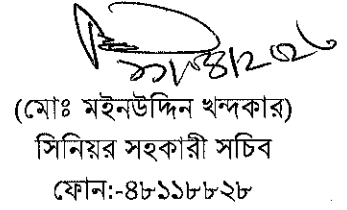 (মোঃ মইনউদ্দিন খন্দকার)
সিনিয়র সহকারী সচিব
ফোন:-৪৮১১৮৮২৮